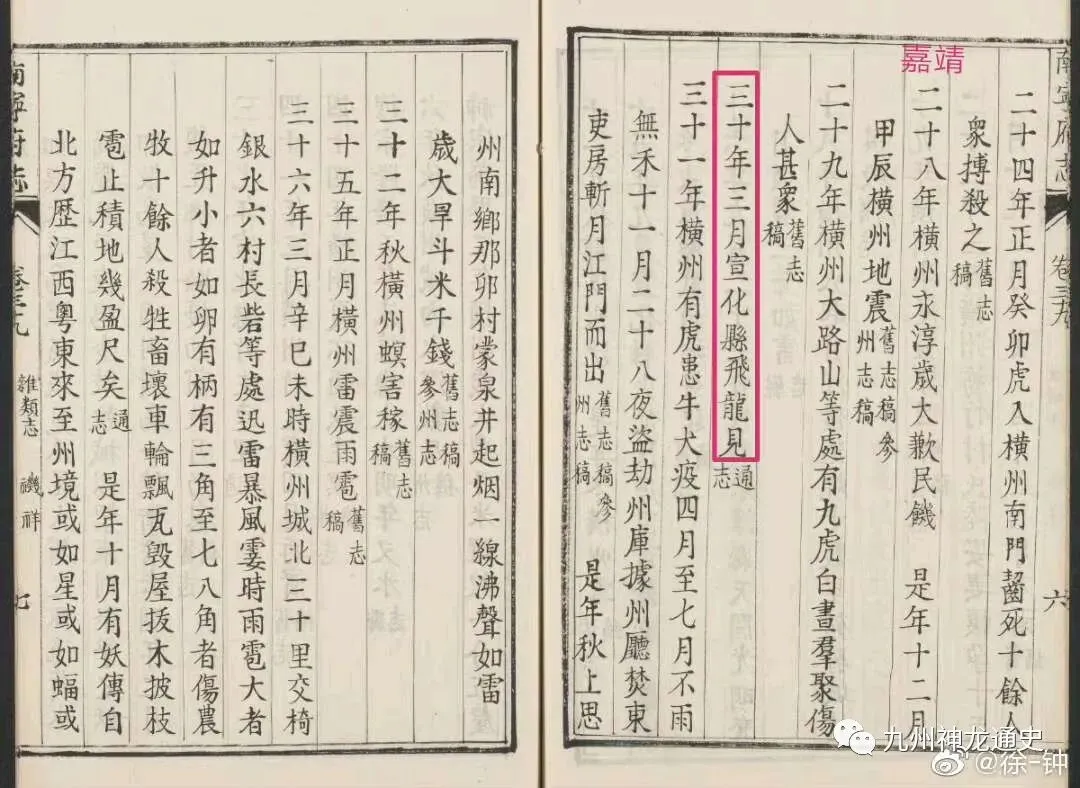 嘉靖
南寧府志
卷三十九
六
二十四年正月癸卯虎入橫州南門齧死十餘人
衆搏殺之舊志稿
二十八年橫州永淳歲大歉民饑 是年十二月
甲辰橫州地震舊志稿參州志稿
二十九年橫州大路山等處有九虎白晝羣聚傷
人甚衆舊志稿
三十年三月宣化縣飛龍見通志
三十一年橫州有虎患牛犬疫四月至七月不雨
無禾十一月二十八夜盜劫州庫據州廳焚東
吏房斬月江門而出舊志稿參州志稿 是年秋上思
州南鄉那卯村蒙泉井起烟一線沸聲如雷
歲大旱斗米千錢舊志稿參州志
三十二年秋橫州螟害稼舊志稿
三十五年正月橫州雷震雨雹舊志稿
三十六年三月辛巳未時橫州城北三十里交椅
銀水六村長砦等處迅雷暴風霎時雨雹大者
如升小者如卵有柄有三角至七八角者傷農
牧十餘人殺牲畜壞車輪飄瓦毀屋拔木披枝
雹止積地幾盈尺矣通志 是年十月有妖傳自
北方歷江西粵東來至州境或如星或如蝠或
南寧府志
卷三十九
雜類志 禨祥
七
九州神龙通史
@徐-钟